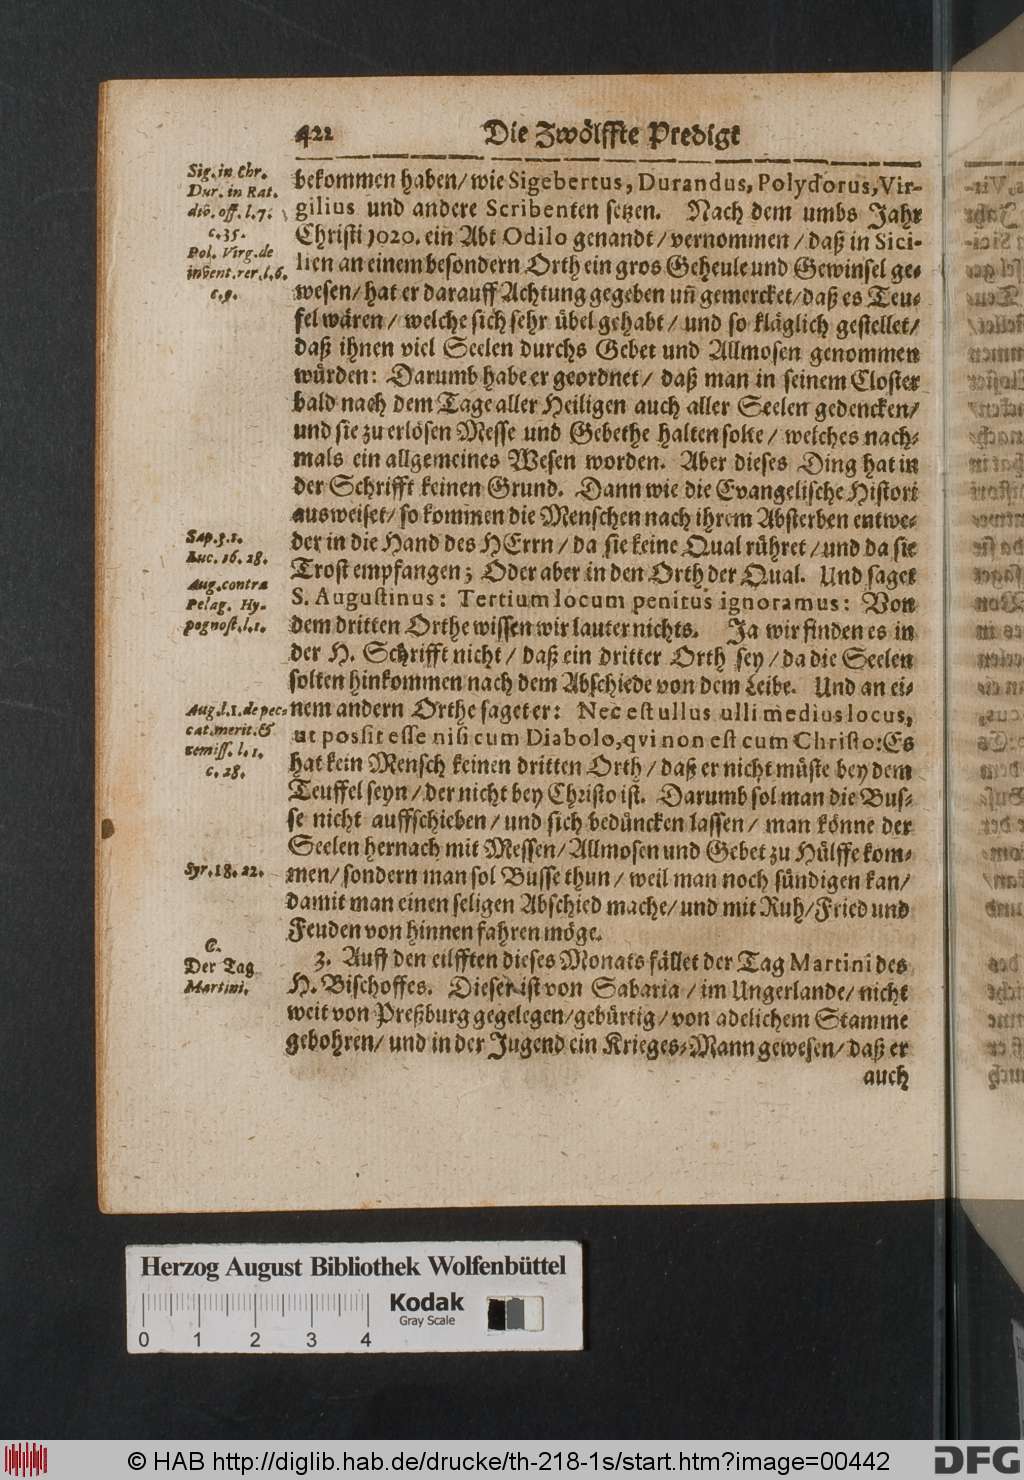 422 Die Zwölffte Predigt
Sig. in Chr.
Dur. in Rat.
div. off. l. 7.
c. 35.
Pol. Virg. de
invent. rer. l. 6.
c. 9.
bekommen haben/ wie Sigebertus, Durandus, Polydorus, Vir-
gilius und andere Scribenten setzen. Nach dem umbs Jahr
Christi 1020. ein Abt Odilo genandt/ vernommen/ daß in Sici-
lien an einem besondern Orth ein gros Geheule und Gewinsel ge-
wesen/ hat er darauff Achtung gegeben uñ gemercket/ daß es Teu-
fel wären/ welche sich sehr übel gehabt/ und so kläglich gestellet/
daß ihnen viel Seelen durchs Gebet und Allmosen genommen
würden: Darumb habe er geordnet/ daß man in seinem Closter
bald nach dem Tage aller Heiligen auch aller Seelen gedencken/
und sie zu erlösen Messe und Gebethe halten solte/ welches nach-
mals ein allgemeines Wesen worden. Aber dieses Ding hat in
der Schrifft keinen Grund. Dann wie die Evangelische Histori
ausweiset/ so kommen die Menschen nach ihrem Absterben entwe-
Sap. 3. 1.
Luc. 16. 28.
Aug. contra
Pelag. Hy-
pognost. l. 1.
der in die Hand des HErrn/ da sie keine Qual rühret/ und da sie
Trost empfangen; Oder aber in den Orth der Qual. Und saget
S. Augustinus: Tertium locum penitus ignoramus: Von
dem dritten Orthe wissen wir lauter nichts. Ja wir finden es in
der H. Schrifft nicht/ daß ein dritter Orth sey/ da die Seelen
solten hinkommen nach dem Abschiede von dem Leibe. Und an ei-
Aug. l. 1. de pec-
cat. merit. &
remiss. l. 1.
c. 28.
nem andern Orthe saget er: Nec est ullus ulli medius locus,
ut possit esse nisi cum Diabolo, qvi non est cum Christo: Es
hat kein Mensch keinen dritten Orth/ daß er nicht müste bey dem
Teuffel seyn/ der nicht bey Christo ist. Darumb sol man die Bus-
se nicht auffschieben/ und sich bedüncken lassen/ man könne der
Seelen hernach mit Messen/ Allmosen und Gebet zu Hülffe kom-
Syr. 18. 22.
men/ sondern man sol Busse thun/ weil man noch sündigen kan/
damit man einen seligen Abschied mache/ und mit Ruh/ Fried und
Feuden von hinnen fahren möge.
C.
Der Tag
Martini.
3. Auff den eilfften dieses Monats fället der Tag Martini des
H. Bischoffes. Dieser ist von Sabaria/ im Ungerlande/ nicht
weit von Preßburg gegelegen/ gebürtig/ von adelichem Stamme
gebohren/ und in der Jugend ein Krieges-Mann gewesen/ daß er
auch
Herzog August Bibliothek Wolfenbüttel
Kodak
Gray Scale
0 1 2 3 4
© HAB http://diglib.hab.de/drucke/th-218-1s/start.htm?image=00442
DFG